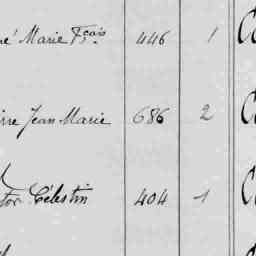 né Marie Fçois 446 1
rre Jean Marie 686 2
tor Célestin 404 1